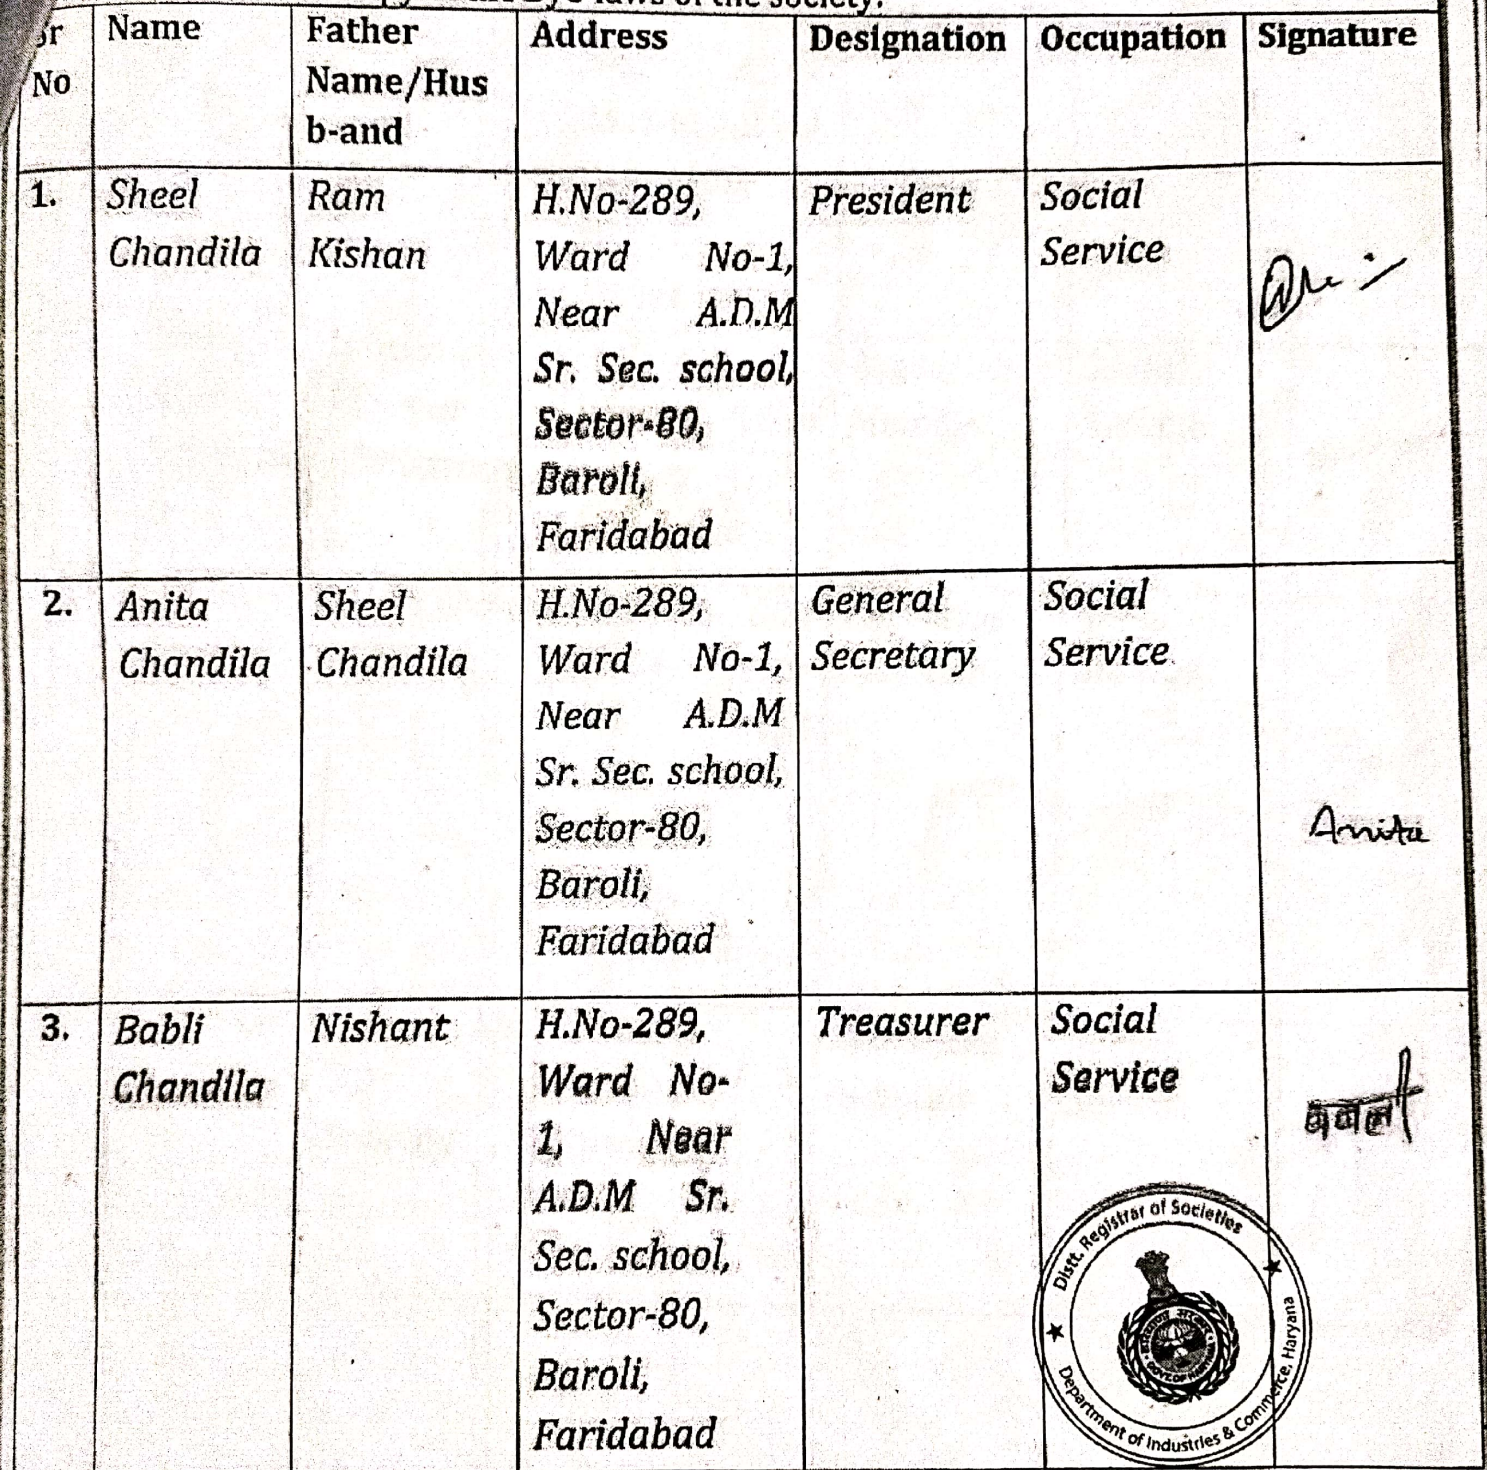 laws of the society.
Sr No | Name | Father Name/Hus b-and | Address | Designation | Occupation | Signature
1. | Sheel Chandila | Ram Kishan | H.No-289, Ward No-1, Near A.D.M Sr. Sec. school, Sector-80, Baroli, Faridabad | President | Social Service |
2. | Anita Chandila | Sheel Chandila | H.No-289, Ward No-1, Near A.D.M Sr. Sec. school, Sector-80, Baroli, Faridabad | General Secretary | Social Service | Anita
3. | Babli Chandila | Nishant | H.No-289, Ward No-1, Near A.D.M Sr. Sec. school, Sector-80, Baroli, Faridabad | Treasurer | Social Service | बबली
Distt. Registrar of Societies
Department of Industries & Commerce, Haryana
GOVT. OF HARYANA